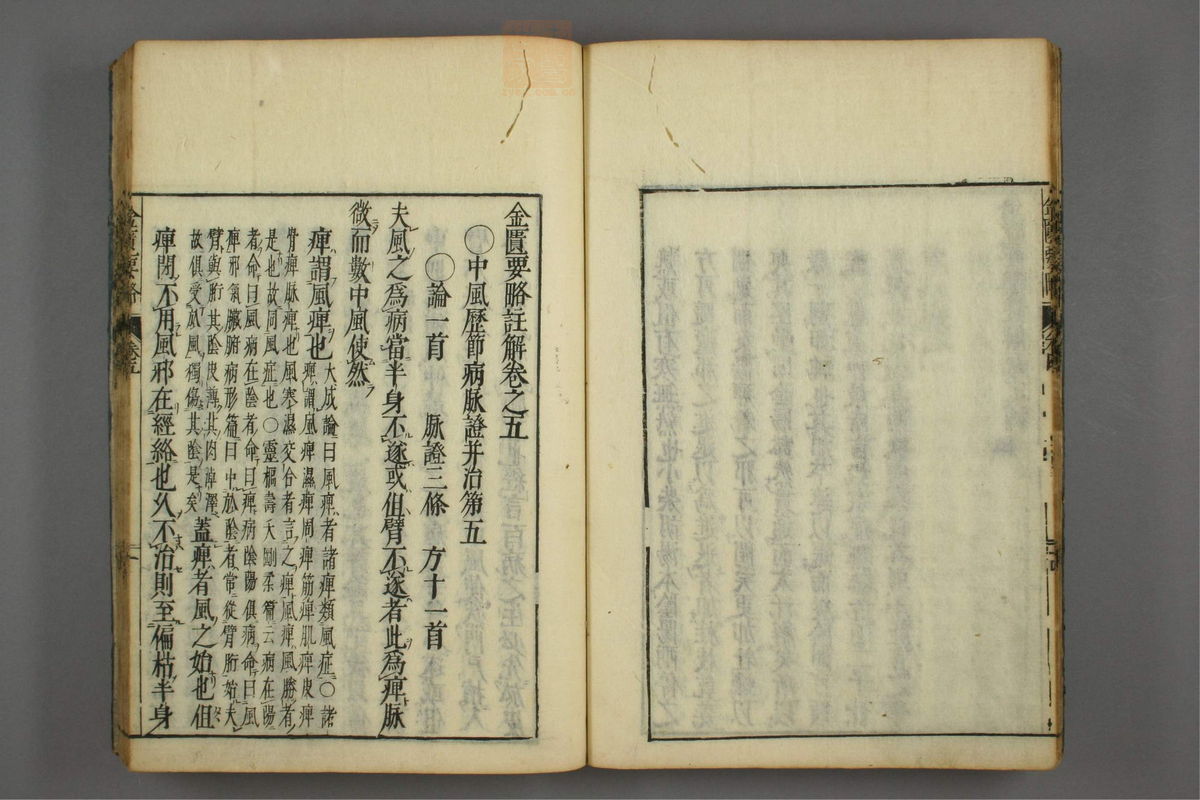 金匱要略註解卷之五
〇中風歷節病脉證并治第五
〇論一首　脉證三條　方十一首
夫風之爲病當半身不遂或但臂不遂者此爲痺脉
微而數中風使然
痺謂風痺也大成論曰風痺者諸痺類風症〇諸
痺謂風痺濕痺周痺筋痺肌痺皮痺
骨痺脉痺也風寒濕交合者言之痺風痺風勝者
是也故同風症也〇靈樞壽夭剛柔篇云病在陽
者命曰風病在陰者命曰痺病陰陽俱病命曰風
痺邪氣臟腑病形篇曰中於陰者常從臂胻始夫
臂與胻其陰皮薄其肉淖澤
故俱受於風獨傷其陰是矣蓋痺者風之始也但
痺閉不用風邪在經絡也久不治則至偏枯半身
金匱要略
卷五